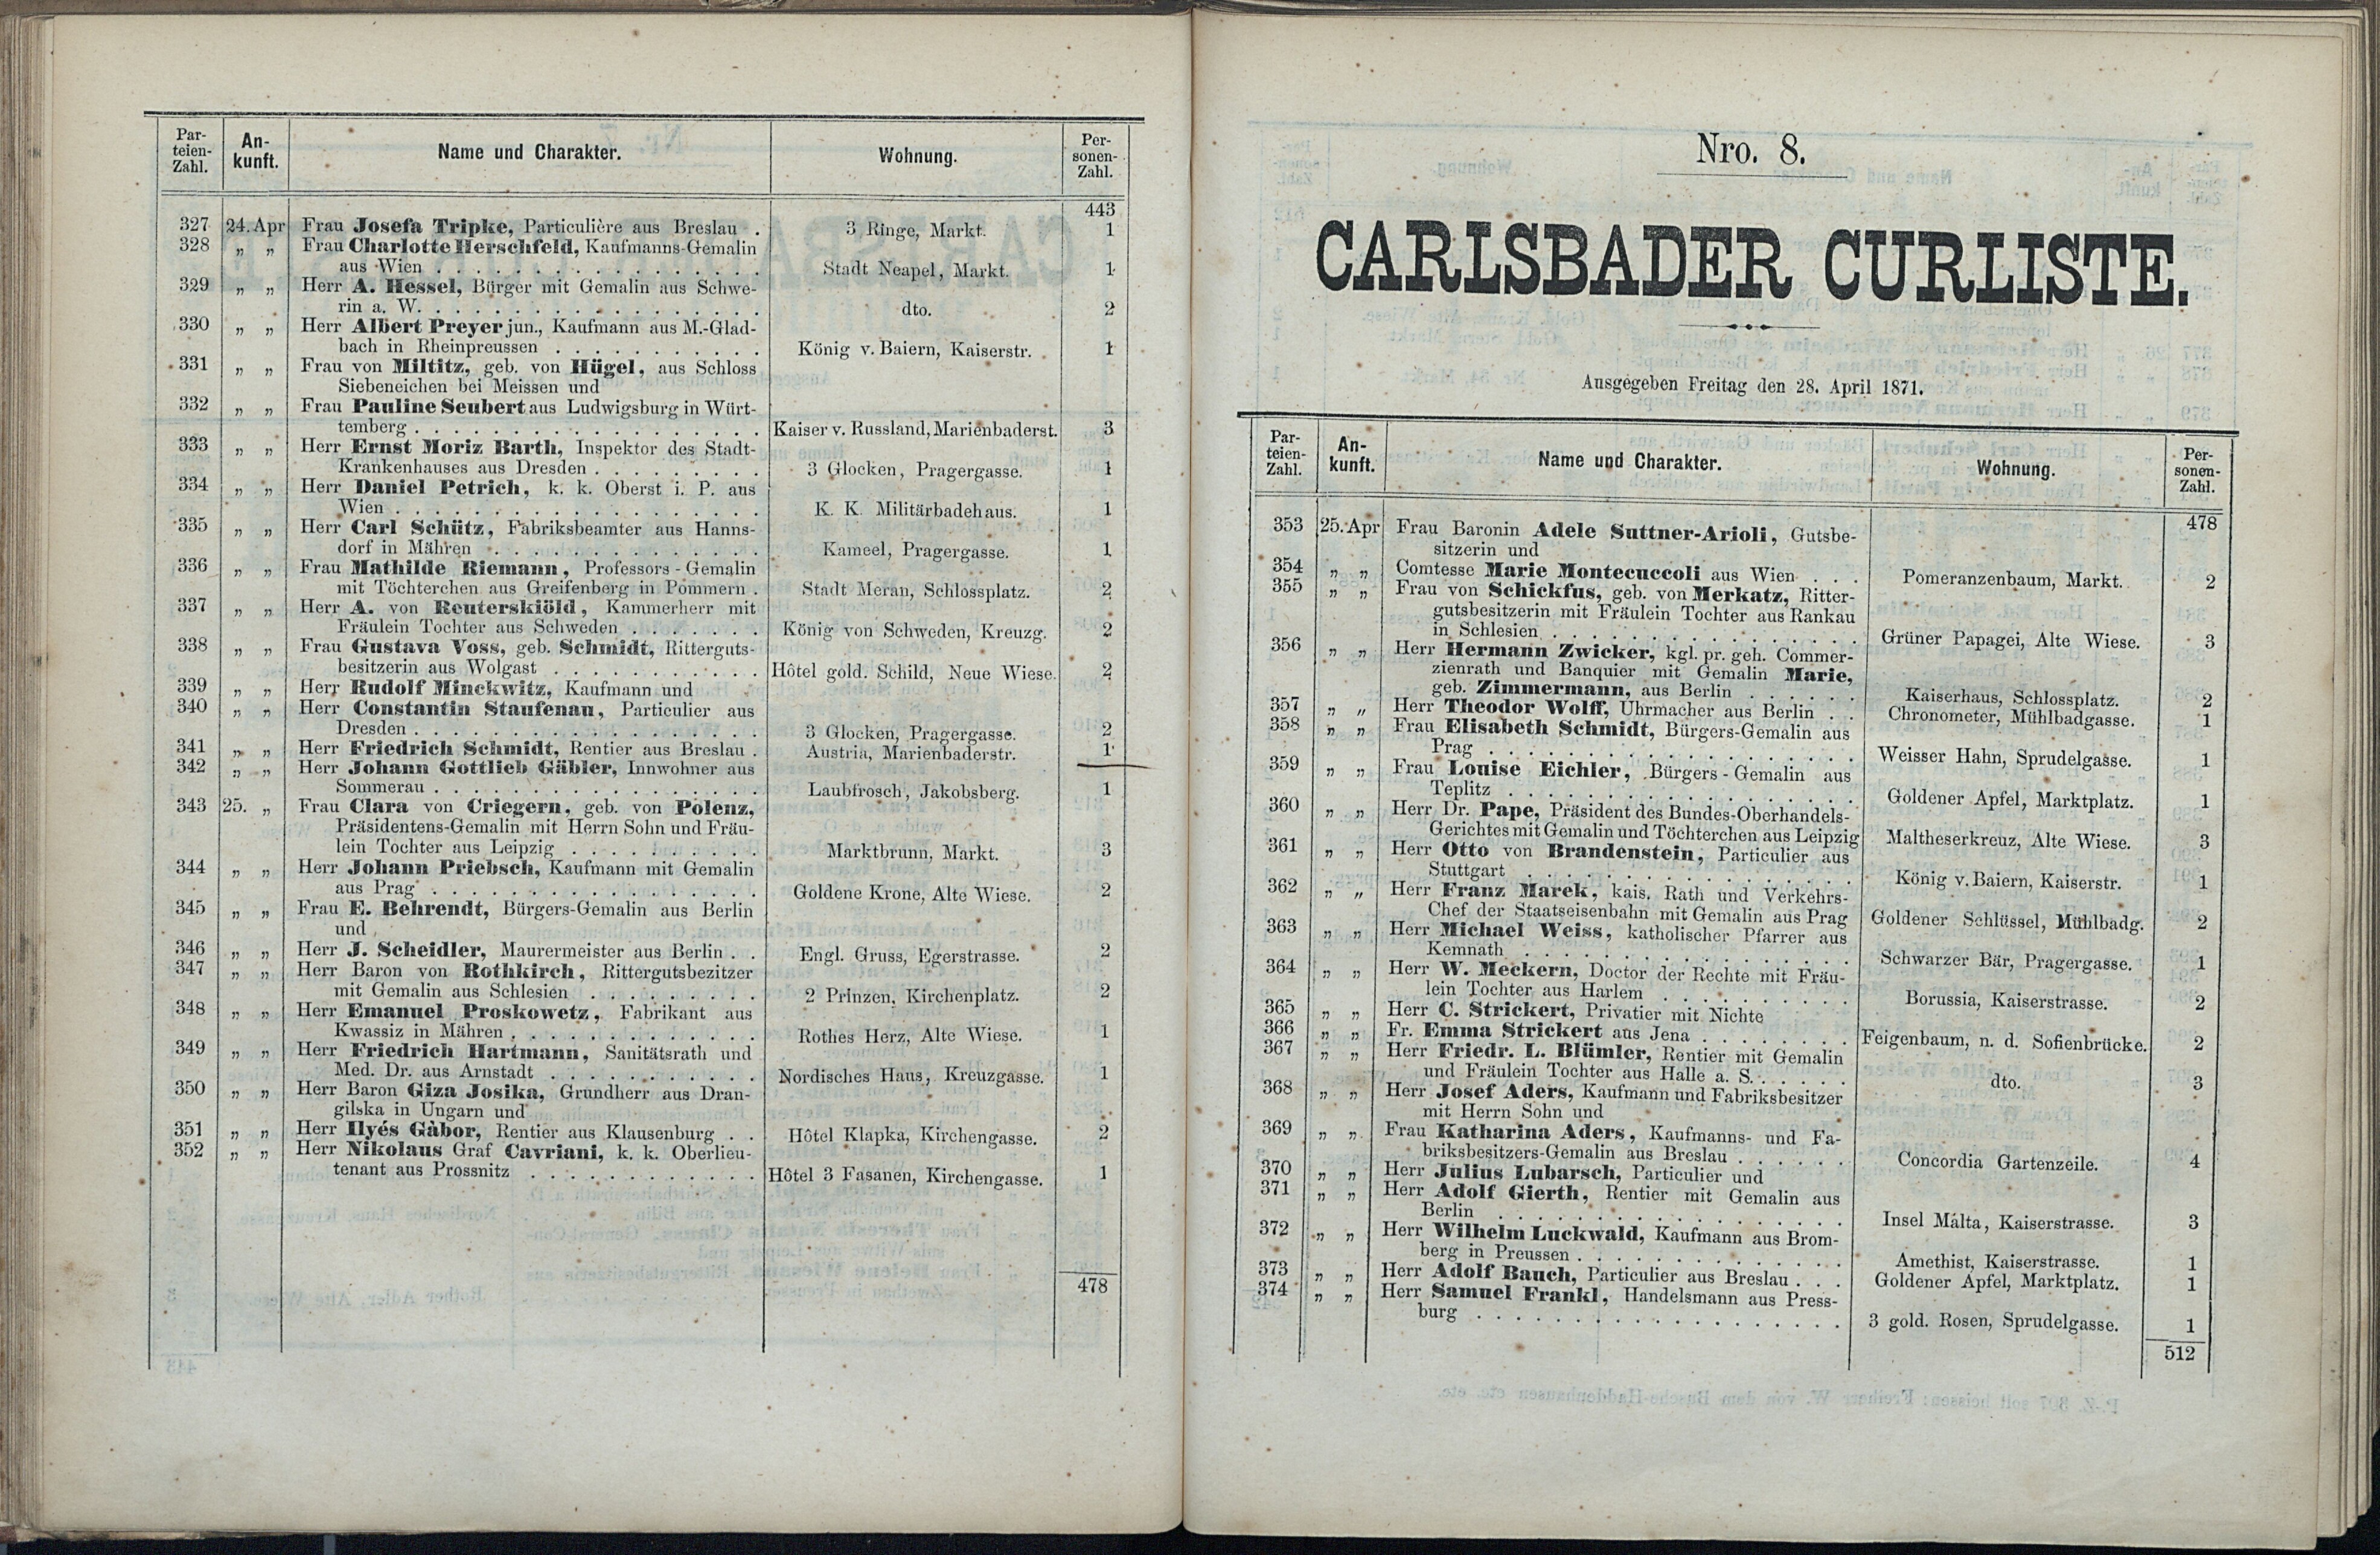 Par-
teien-
Zahl.
An-
kunft.
Name und Charakter.
Wohnung.
Per-
sonen-
Zahl.
443
327 24. Apr Frau Josefa Tripke, Particulière aus Breslau . 3 Ringe, Markt. 1
328 „ „ Frau Charlotte Herschfeld, Kaufmanns-Gemalin
aus Wien . . . Stadt Neapel, Markt. 1
329 „ „ Herr A. Hessel, Bürger mit Gemalin aus Schwe-
rin a. W. . . . dto. 2
330 „ „ Herr Albert Preyer jun., Kaufmann aus M.-Glad-
bach in Rheinpreussen . . . König v. Baiern, Kaiserstr. 1
331 „ „ Frau von Miltitz, geb. von Hügel, aus Schloss
Siebeneichen bei Meissen und
332 „ „ Frau Pauline Seubert aus Ludwigsburg in Würt-
temberg . . . Kaiser v. Russland, Marienbaderst. 3
333 „ „ Herr Ernst Moriz Barth, Inspektor des Stadt-
Krankenhauses aus Dresden . . . 3 Glocken, Pragergasse. 1
334 „ „ Herr Daniel Petrich, k. k. Oberst i. P. aus
Wien . . . K. K. Militärbadehaus. 1
335 „ „ Herr Carl Schütz, Fabriksbeamter aus Hanns-
dorf in Mähren . . . Kameel, Pragergasse. 1
336 „ „ Frau Mathilde Riemann, Professors-Gemalin
mit Töchterchen aus Greifenberg in Pommern . Stadt Meran, Schlossplatz. 2
337 „ „ Herr A. von Reuterskiöld, Kammerherr mit
Fräulein Tochter aus Schweden . . . König von Schweden, Kreuzg. 2
338 „ „ Frau Gustava Voss, geb. Schmidt, Ritterguts-
besitzerin aus Wolgast . . . Hôtel gold. Schild, Neue Wiese. 2
339 „ „ Herr Rudolf Minckwitz, Kaufmann und
340 „ „ Herr Constantin Staufenau, Particulier aus
Dresden . . . 3 Glocken, Pragergasse. 2
341 „ „ Herr Friedrich Schmidt, Rentier aus Breslau . Austria, Marienbaderstr. 1
342 „ „ Herr Johann Gottlieb Gäbler, Innwohner aus
Sommerau . . . Laubfrosch, Jakobsberg. 1
343 25. „ Frau Clara von Criegern, geb. von Polenz,
Präsidentens-Gemalin mit Herrn Sohn und Fräu-
lein Tochter aus Leipzig . . . Marktbrunn, Markt. 3
344 „ „ Herr Johann Priebsch, Kaufmann mit Gemalin
aus Prag . . . Goldene Krone, Alte Wiese. 2
345 „ „ Frau E. Behrendt, Bürgers-Gemalin aus Berlin
und
346 „ „ Herr J. Scheidler, Maurermeister aus Berlin . . Engl. Gruss, Egerstrasse. 2
347 „ „ Herr Baron von Rothkirch, Rittergutsbezitzer
mit Gemalin aus Schlesien . . . 2 Prinzen, Kirchenplatz. 2
348 „ „ Herr Emanuel Proskowetz, Fabrikant aus
Kwassiz in Mähren . . . Rothes Herz, Alte Wiese. 1
349 „ „ Herr Friedrich Hartmann, Sanitätsrath und
Med. Dr. aus Arnstadt . . . Nordisches Haus, Kreuzgasse. 1
350 „ „ Herr Baron Giza Josika, Grundherr aus Dran-
gilska in Ungarn und
351 „ „ Herr Ilyés Gàbor, Rentier aus Klausenburg . . Hôtel Klapka, Kirchengasse. 2
352 „ „ Herr Nikolaus Graf Cavriani, k. k. Oberlieu-
tenant aus Prossnitz . . . Hôtel 3 Fasanen, Kirchengasse. 1
478
Nro. 8.
CARLSBADER CURLISTE.
Ausgegeben Freitag den 28. April 1871.
Par-
teien-
Zahl.
An-
kunft.
Name und Charakter.
Wohnung.
Per-
sonen-
Zahl.
478
353 25. Apr Frau Baronin Adele Suttner-Arioli, Gutsbe-
sitzerin und
354 „ „ Comtesse Marie Montecuccoli aus Wien . . . Pomeranzenbaum, Markt. 2
355 „ „ Frau von Schickfus, geb. von Merkatz, Ritter-
gutsbesitzerin mit Fräulein Tochter aus Rankau
in Schlesien . . . Grüner Papagei, Alte Wiese. 3
356 „ „ Herr Hermann Zwicker, kgl. pr. geh. Commer-
zienrath und Banquier mit Gemalin Marie,
geb. Zimmermann, aus Berlin . . . Kaiserhaus, Schlossplatz. 2
357 „ „ Herr Theodor Wolff, Uhrmacher aus Berlin . . Chronometer, Mühlbadgasse. 1
358 „ „ Frau Elisabeth Schmidt, Bürgers-Gemalin aus
Prag . . . Weisser Hahn, Sprudelgasse. 1
359 „ „ Frau Louise Eichler, Bürgers-Gemalin aus
Teplitz . . . Goldener Apfel, Marktplatz. 1
360 „ „ Herr Dr. Pape, Präsident des Bundes-Oberhandels-
Gerichtes mit Gemalin und Töchterchen aus Leipzig Maltheserkreuz, Alte Wiese. 3
361 „ „ Herr Otto von Brandenstein, Particulier aus
Stuttgart . . . König v. Baiern, Kaiserstr. 1
362 „ „ Herr Franz Marek, kais. Rath und Verkehrs-
Chef der Staatseisenbahn mit Gemalin aus Prag Goldener Schlüssel, Mühlbadg. 2
363 „ „ Herr Michael Weiss, katholischer Pfarrer aus
Kemnath . . . Schwarzer Bär, Pragergasse. 1
364 „ „ Herr W. Meckern, Doctor der Rechte mit Fräu-
lein Tochter aus Harlem . . . Borussia, Kaiserstrasse. 2
365 „ „ Herr C. Strickert, Privatier mit Nichte
366 „ „ Fr. Emma Strickert aus Jena . . . Feigenbaum, n. d. Sofienbrücke. 2
367 „ „ Herr Friedr. L. Blümler, Rentier mit Gemalin
und Fräulein Tochter aus Halle a. S. . . . dto. 3
368 „ „ Herr Josef Aders, Kaufmann und Fabriksbesitzer
mit Herrn Sohn und
369 „ „ Frau Katharina Aders, Kaufmanns- und Fa-
briksbesitzers-Gemalin aus Breslau . . . Concordia Gartenzeile. 4
370 „ „ Herr Julius Lubarsch, Particulier und
371 „ „ Herr Adolf Gierth, Rentier mit Gemalin aus
Berlin . . . Insel Malta, Kaiserstrasse. 3
372 „ „ Herr Wilhelm Luckwald, Kaufmann aus Brom-
berg in Preussen . . . Amethist, Kaiserstrasse. 1
373 „ „ Herr Adolf Bauch, Particulier aus Breslau . . . Goldener Apfel, Marktplatz. 1
374 „ „ Herr Samuel Frankl, Handelsmann aus Press-
burg . . . 3 gold. Rosen, Sprudelgasse. 1
512